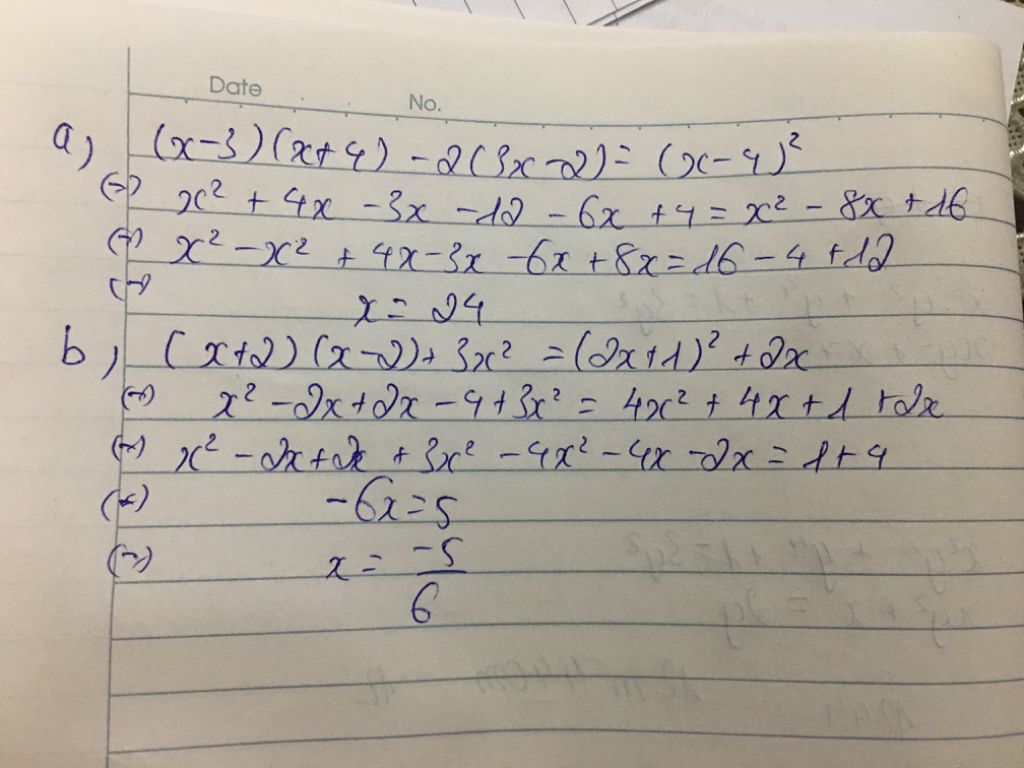 Date No.
a, (x-3)(x+4) - 2(3x-2) = (x-4)²
(=) x² + 4x - 3x - 12 - 6x + 4 = x² - 8x + 16
(=) x² - x² + 4x - 3x - 6x + 8x = 16 - 4 + 12
(=) x = 24
b, (x+2)(x-2) + 3x² = (2x+1)² + 2x
(=) x² - 2x + 2x - 4 + 3x² = 4x² + 4x + 1 + 2x
(=) x² - 2x + 2x + 3x² - 4x² - 4x - 2x = 1 + 4
(=) -6x = 5
(=) x = -5/6